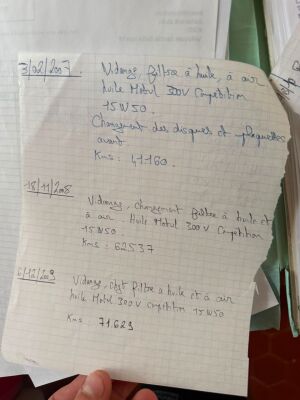 3/02/2007 Vidange, filtre à huile, à air
huile Motul 300V Competition
15W50.
Changement des disques et plaquettes
avant
Kms : 41160.
18/11/2008 Vidange, changement filtre à huile et
à air. Huile Motul 300V Competition
15W50.
Kms : 62537
6/12/2009 Vidange, chgt filtre à huile et à air
huile Motul 300V competition 15W50
Kms 71623